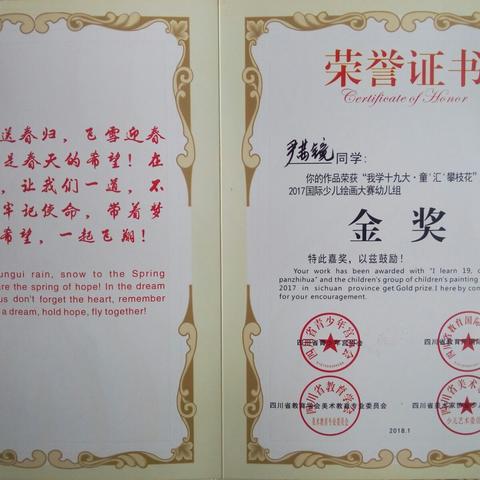 送春归，飞雪迎春
是春天的希望！在
，让我们一道，不
牢记使命，带着梦
希望，一起飞翔！
ungui rain, snow to the Spring
are the spring of hope! In the dream
us don't forget the heart, remember
a dream, hold hope, fly together!
荣誉证书
Certificate of Honor
同学：
你的作品荣获“我学十九大·童‘汇’攀枝花”
2017国际少儿绘画大赛幼儿组
金奖
特此嘉奖，以兹鼓励！
Your work has been awarded with "I learn 19, c
panzhihua" and the children's group of children's painting
2017 in sichuan province get Gold prize.I here by com
for your encouragement.
四川省青少年宫协会
四川省教育
四川省教育学会美术教育专业委员会
四川省美术家协会
2018.1